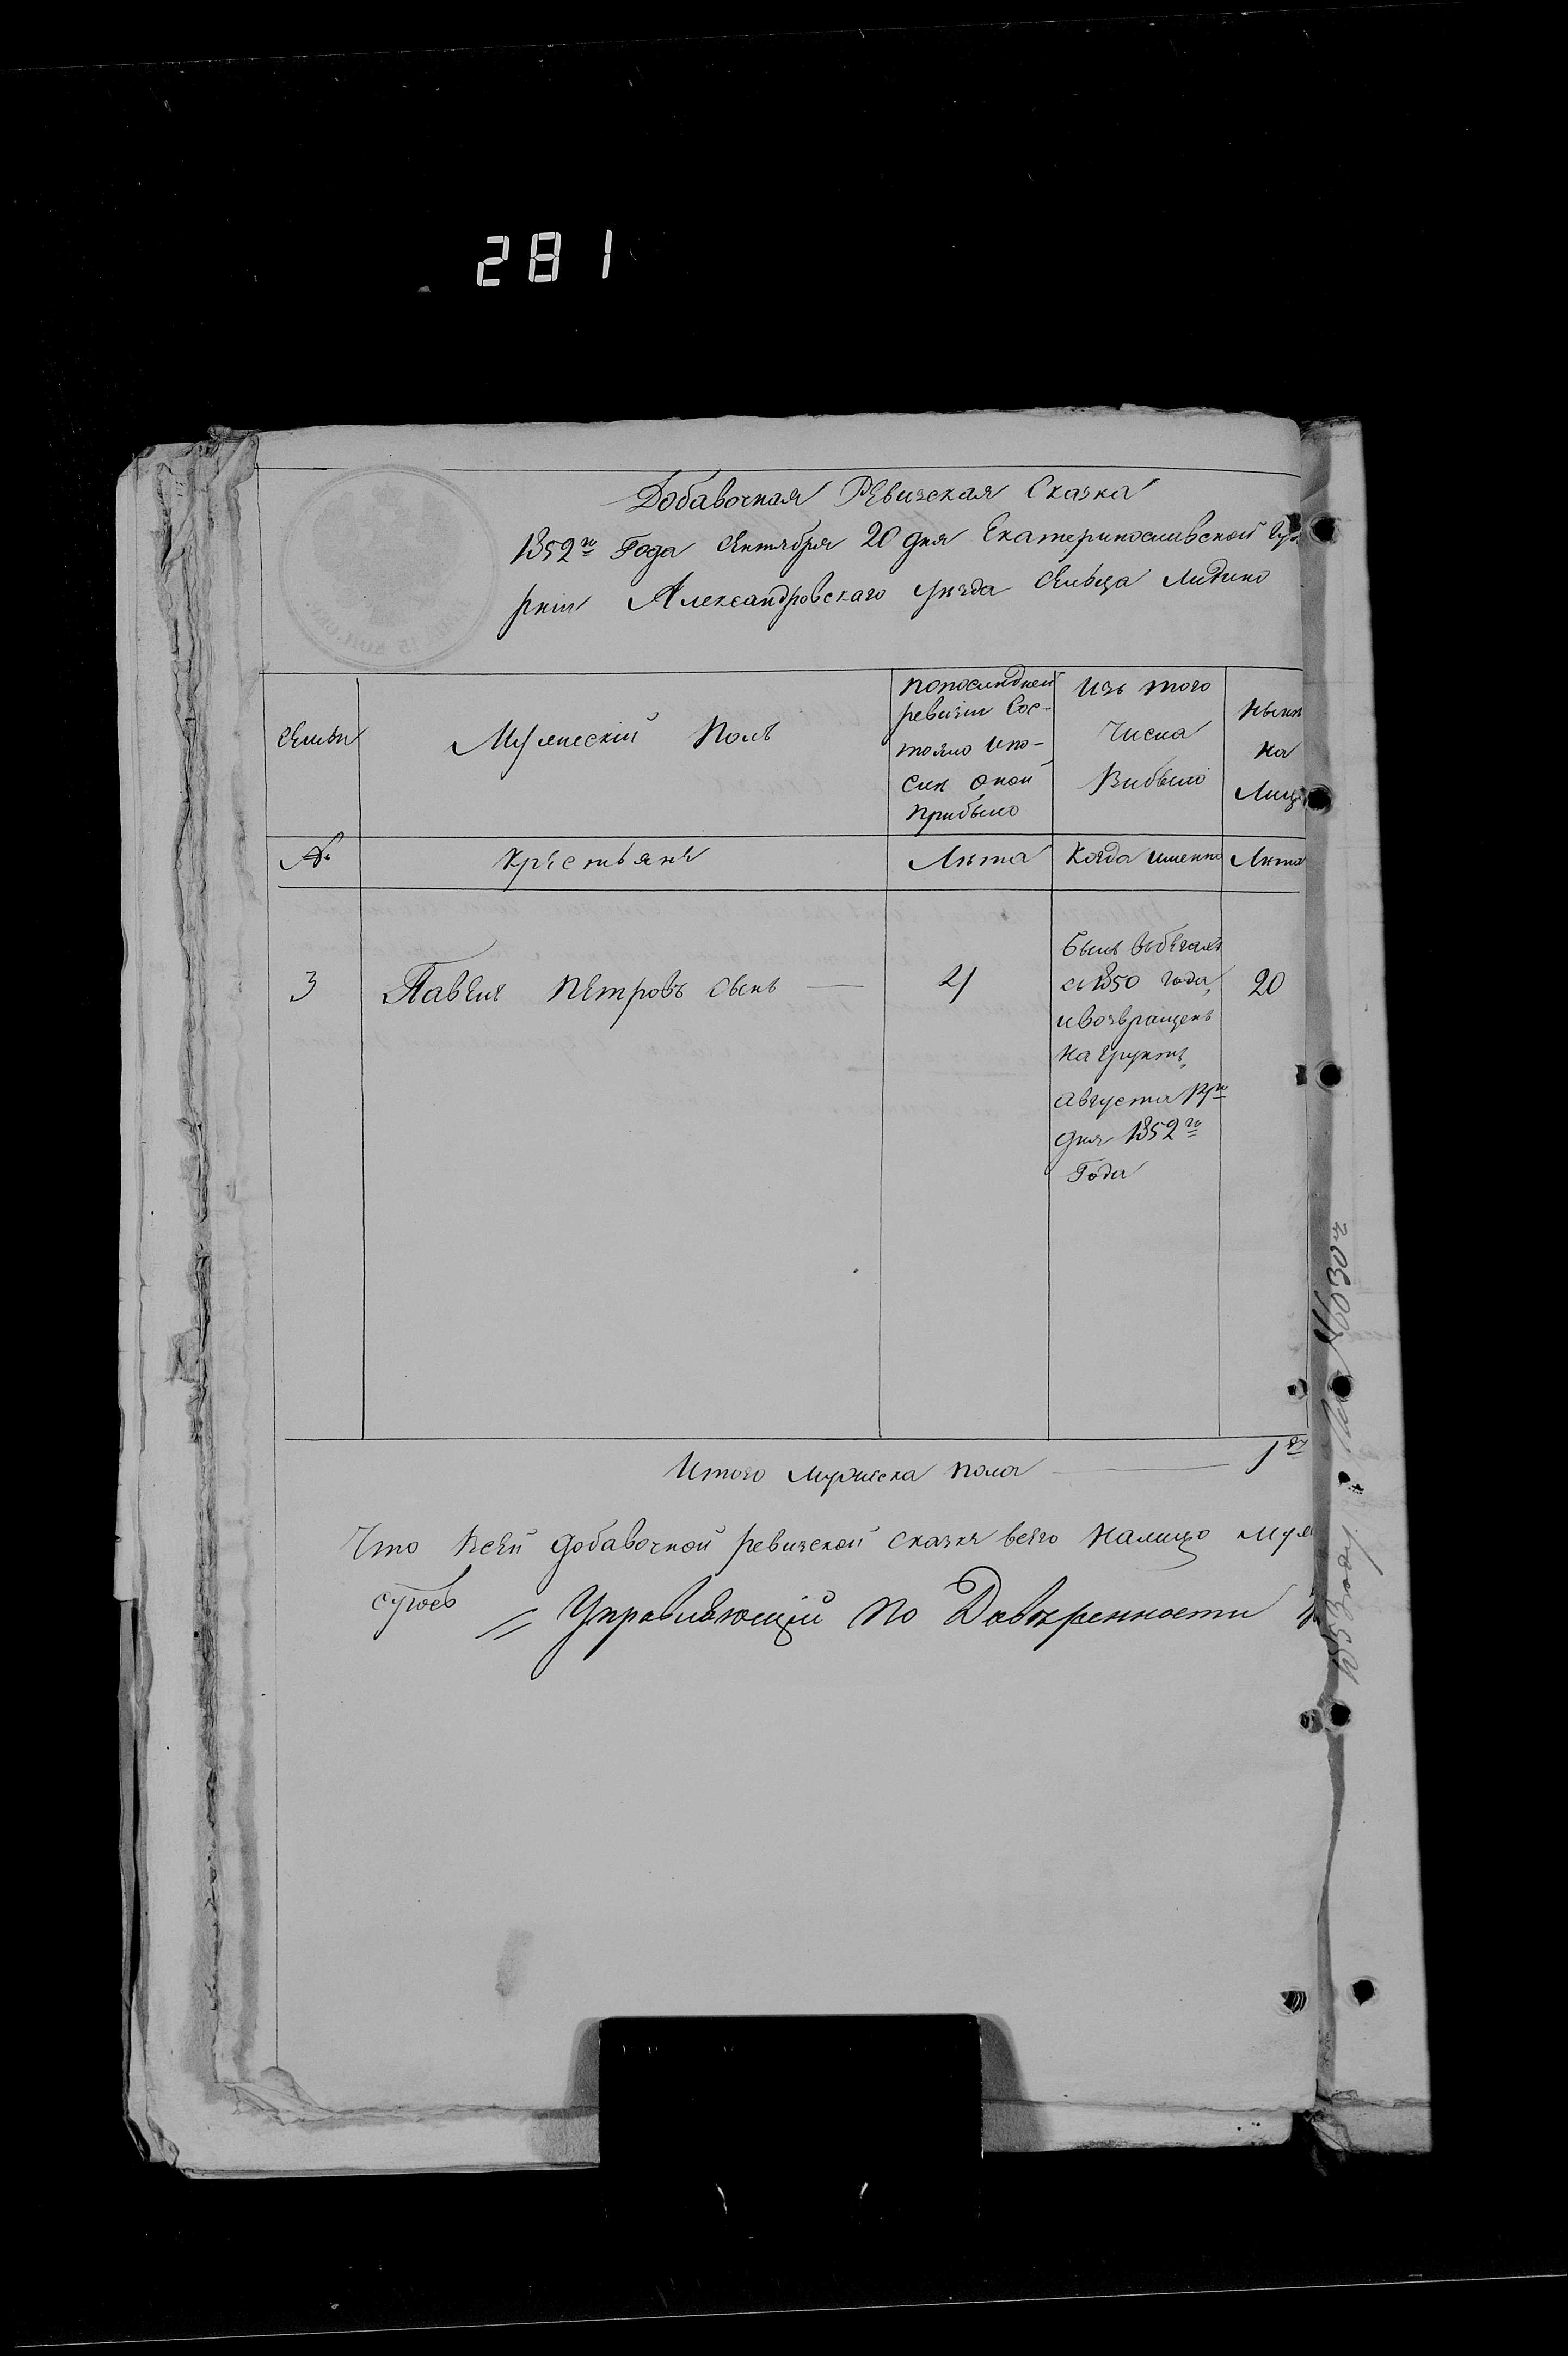 281
Добавочная Ревизская Сказка
1852го Года Октября 20 дня Екатеринославской Гу
рніи Александровскаго уѣзда Сельца
Семьи
Мужескій Полъ
Попослѣдней
ревизіи Сос-
тояло ипо-
слѣ оной
прибыло
Изъ того
Числа
Выбыло
Нынѣ
На
Лиц
№
Крестьяне
Лѣта
Когда именно
Лѣта
3
Павелъ Петровъ сынъ
Былъ въбѣгахъ
съ 1850 года,
ивозвращенъ
на Грунтъ,
августа
дня 1852го
Года
20
Итого мужеска пола
1
Что всей добавочной ревизской сказкѣ всего налицо муж
Управляющій по Довѣренности